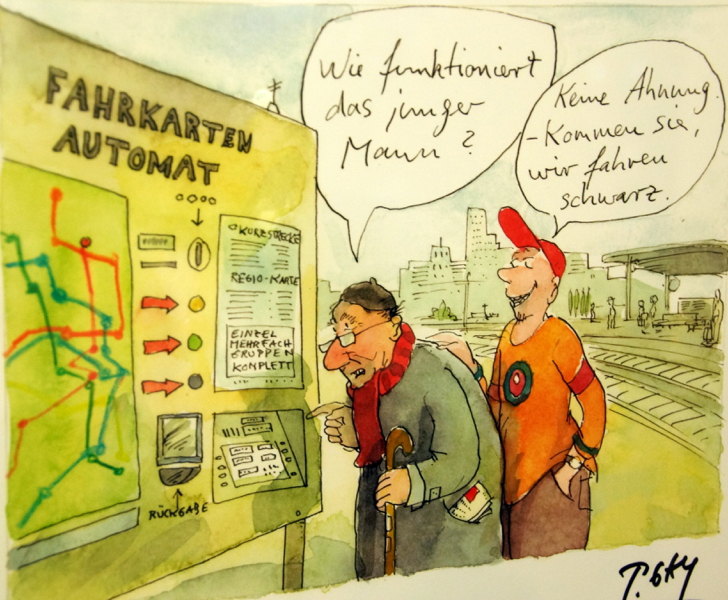 FAHRKARTEN
AUTOMAT
Wie funktioniert
das junger
Mann?
Keine Ahnung.
-Kommen Sie,
wir fahren
schwarz.
KURZSTRECKE
REGIO-KARTE
EINZEL
MEHRFACH
GRUPPEN
KOMPLETT
RÜCKGABE